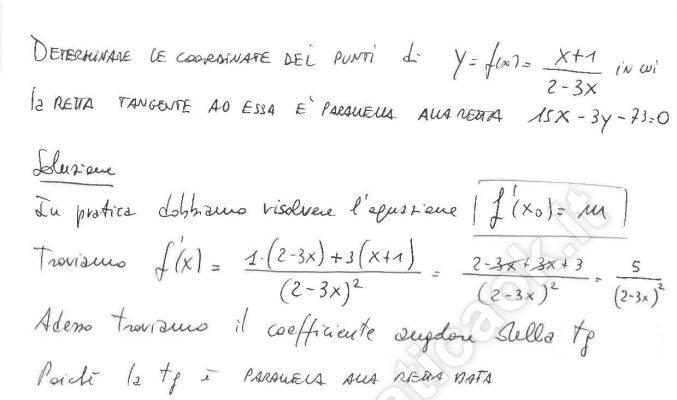 DETERMINARE LE COORDINATE DEI PUNTI di y = f(x) = \frac{x+1}{2-3x} IN CUI
la RETTA TANGENTE AD ESSA E' PARALLELA ALLA RETTA 15x - 3y - 73 = 0
Soluzione
In pratica dobbiamo risolvere l'equazione | f'(x₀) = m |
Troviamo f'(x) = \frac{1·(2-3x)+3(x+1)}{(2-3x)^2} = \frac{2-3x+3x+3}{(2-3x)^2} = \frac{5}{(2-3x)^2}
Adesso troviamo il coefficiente angolare della tg
Poiché la tg è PARALLELA ALLA RETTA DATA
aticaok.it